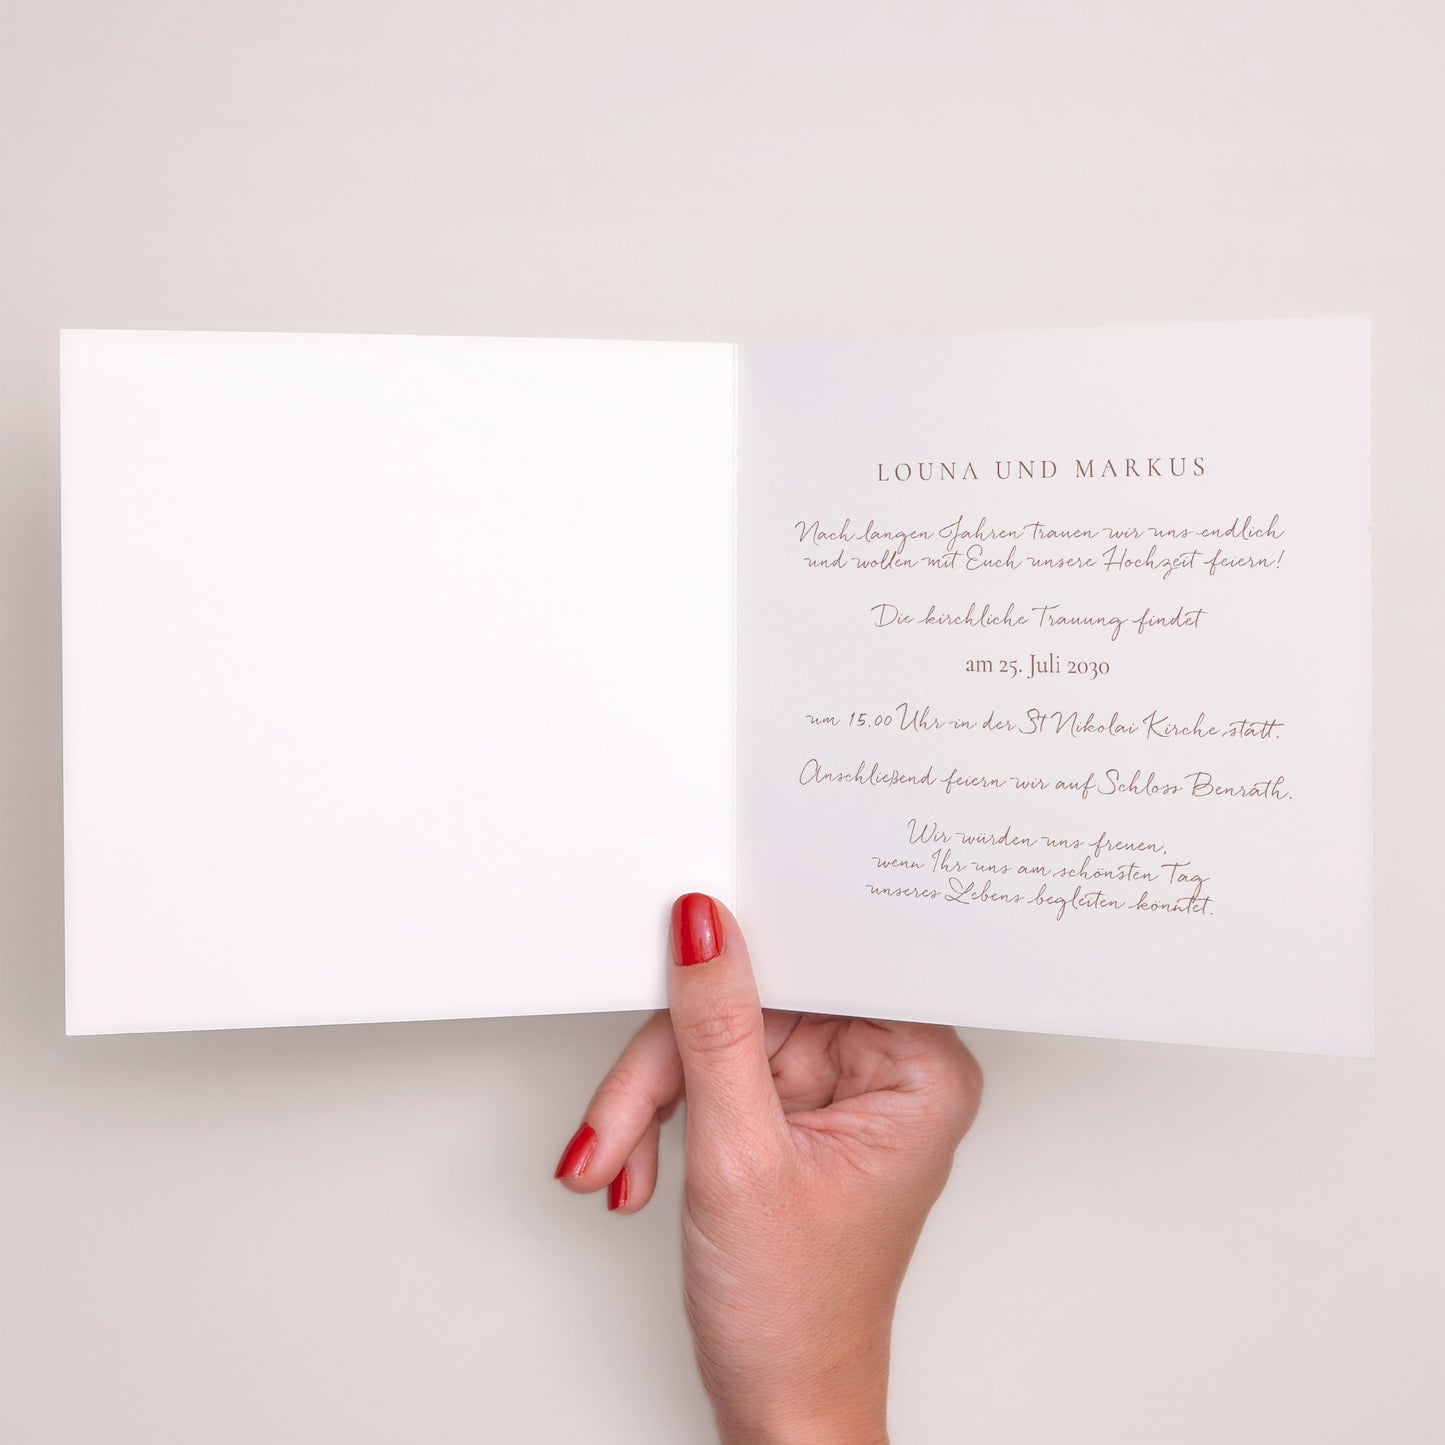 LOUNA UND MARKUS
Nach langen Jahren trauen wir uns endlich
und wollen mit Euch unsere Hochzeit feiern!
Die kirchliche Trauung findet
am 25. Juli 2030
um 15.00 Uhr in der St Nikolai Kirche statt.
Anschließend feiern wir auf Schloss Benrath.
Wir würden uns freuen,
wenn Ihr uns am schönsten Tag
unseres Lebens begleiten könntet.